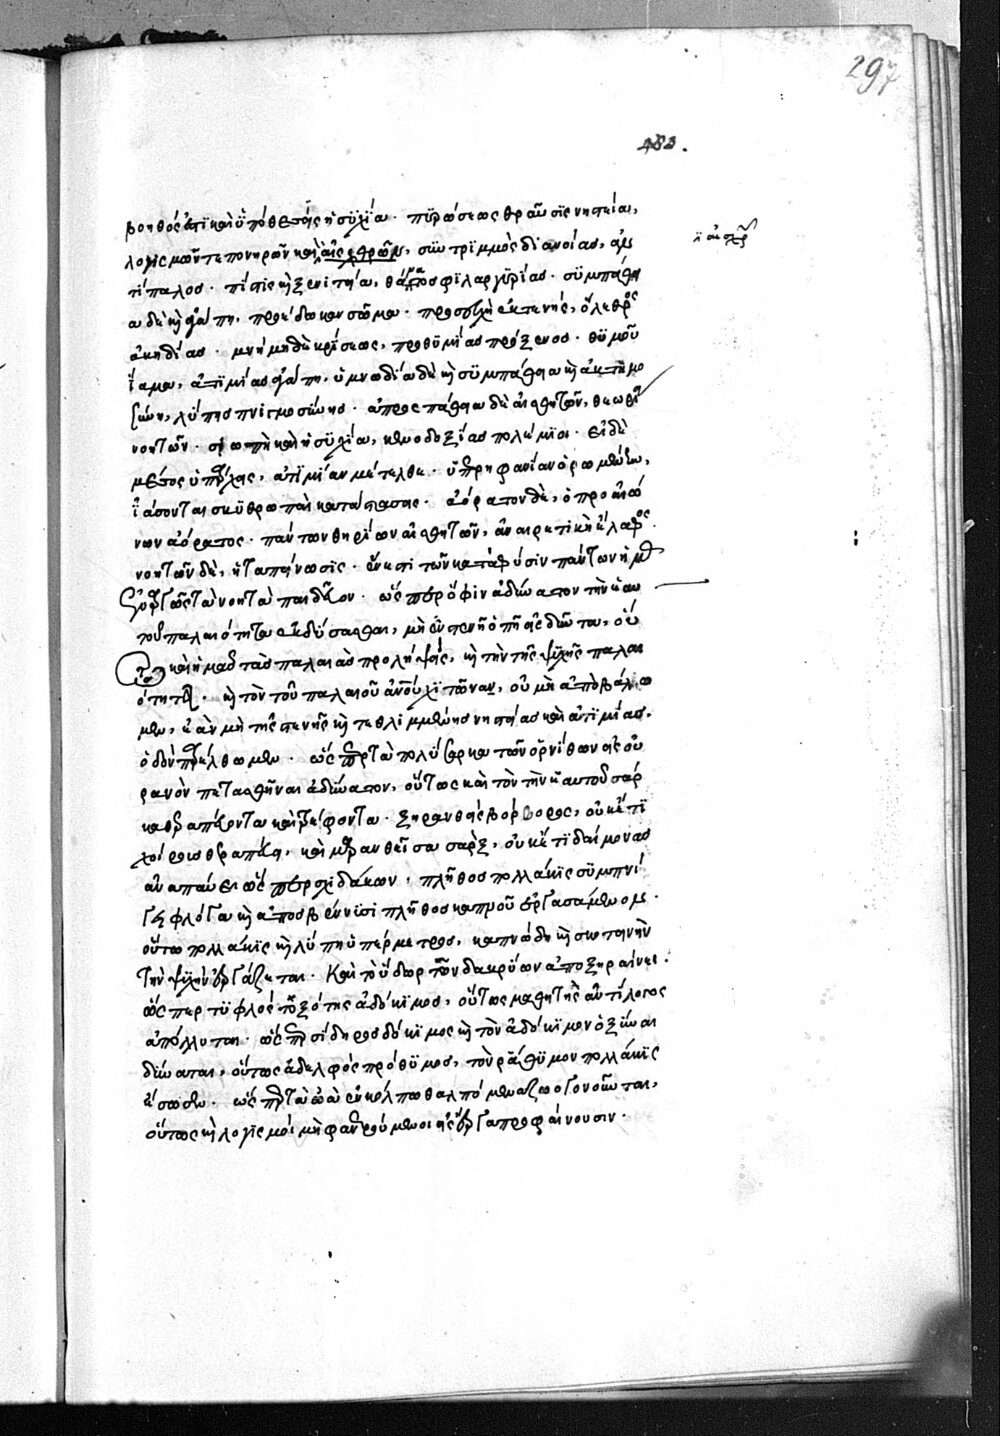 297
483.
βοηθός ἐστι καὶ ὑπόθεσις ἡσυχία. πυρώσεως θραῦσις νηστεία,
λογισμῶν τε πονηρῶν καὶ αἰσχρῶν, συντριμμὸς διανοίας, ἀν
τίπαλος. πίστις καὶ ξενιτεία, θάνατος φιλαργυρίας. συμπάθει
α δὲ καὶ ἀγάπη, προέδωκαν σῶμα. προσευχὴ ἐκτενής, ὄλεθρος
ἀκηδίας. μνήμη δὲ κρίσεως, προθυμίας πρόξενος. θυμοῦ
ἴαμα, ἀτιμίας ἀγάπη. ὑμνωδία δὲ καὶ συμπάθεια καὶ ἀκτημο
σύνη, λύπης πνιγμοσύνης. ἀπροσπάθεια δὲ αἰσθητῶν, θεωρία
νοητῶν. σιωπὴ καὶ ἡσυχία, κενοδοξίας πολέμιοι. εἰ δὲ
μέσος ὑπάρχεις, ἀτιμίαν μέτελθε. ὑπερηφανίαν ὁρωμένην,
ἰάσονται σκυθρωπαὶ καταστάσεις. ἀόρατον δὲ, ὁ προαιώ
νων ἀόρατος. πάντων θηρίων αἰσθητῶν, ἀναιρετικὴ ἔλαφος.
νοητῶν δὲ, ἡ ταπείνωσις. ἔνεστι τῶν κατὰ φύσιν πάντων ἡμᾶς
τὰ νοητὰ παιδεύειν. ὥσπερ ὄφιν ἀδύνατον τὴν ἑαυ
τοῦ παλαιότητα ἐκδύσασθαι, μὴ ἐν στενῆ ὀπῆ εἰσδῦντα, οὕ
τω καὶ ἡμᾶς τὰς παλαιὰς προλήψεις, καὶ τὴν τῆς ψυχῆς παλαι
ότητα. καὶ τὸν τοῦ παλαιοῦ ἀνθρώπου χιτῶνα, οὐ μὴ ἀποβάλω
μεν, ἐὰν μὴ τῆς στενῆς καὶ τεθλιμμένης νηστείας καὶ ἀτιμίας,
ὁδὸν διέλθωμεν. ὥσπερ τὰ πολύσαρκα τῶν ὀρνίθων εἰς οὐ
ρανὸν πετασθῆναι ἀδύνατον, οὕτως καὶ τὸν τὴν ἑαυτοῦ σάρ
κα θεραπεύοντα καὶ τρέφοντα. ξηρανθεὶς βόρβορος, οὐκέτι
χοίρους θεραπεύει, καὶ μαρανθεῖσα σὰρξ, οὐκέτι δαίμονας
ἀναπαύει ὥσπερ σχιδάκων, πλῆθος πολλάκις συμπνί
γει φλόγα καὶ ἀποσβέννυσι πλῆθος καπνοῦ ἐργασάμενον.
οὕτω πολλάκις καὶ λύπη ὑπέρμετρος, καπνώδη καὶ σκοτεινὴν
τὴν ψυχὴν ἐργάζεται. Καὶ τὸ ὕδωρ τῶν δακρύων ἀποξηραίνει.
ὥσπερ τυφλὸς τοξότης ἀδόκιμος, οὕτως μαθητὴς ἀντίλογος
ἀπόλλυται. ὥσπερ σίδηρος δόκιμος καὶ τὸν ἀδόκιμον ὀξύναι
δύναται, οὕτως ἀδελφὸς πρόθυμος, τὸν ῥάθυμον πολλάκις
ἔσωσεν. ὥσπερ τὰ ὠὰ ἐν κόλπω θαλπόμενα ζωογονοῦνται,
οὕτως καὶ λογισμοὶ μὴ φανερούμενοι εἰς ἔργα προφαίνουσιν.